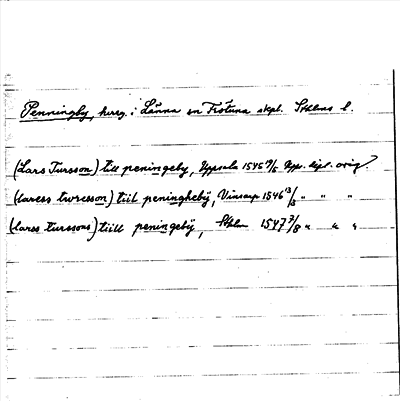 Penningby, herrg. i Länna sn Frötuna skpl. Sthlms l.
(Lars Tursson) till peningeby, Uppsala 1545 9/5 Upps. dipl. orig.
(laress twresson) tiil peningheby, Vinsarp 1546 13/3 " " "
(larss turssons) tiill peningeby, Sthlm 1547 7/8 " " "